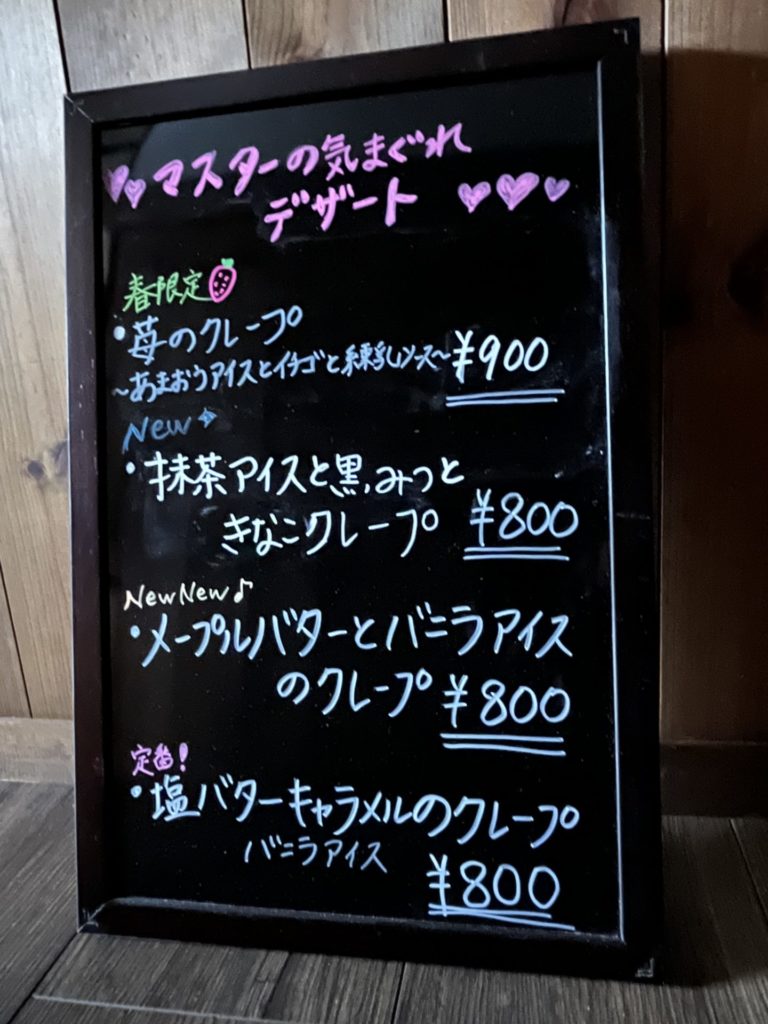 マスターの気まぐれ
デザート
春限定
・苺のクレープ
〜あまおうアイスとイチゴと練乳ソース〜 ¥900
New
・抹茶アイスと黒みつと
きなこクレープ ¥800
NewNew♪
・メープルバターとバニラアイス
のクレープ ¥800
定番!
・塩バターキャラメルのクレープ
バニラアイス
¥800